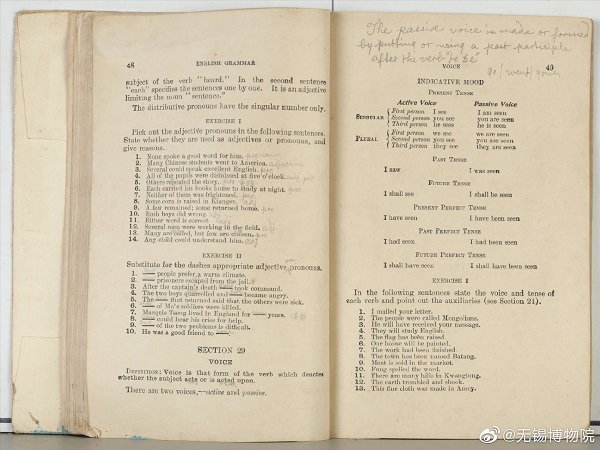 48 ENGLISH GRAMMAR
subject of the verb "heard." In the second sentence
"each" specifies the sentences one by one. It is an adjective
limiting the noun "sentence."
The distributive pronouns have the singular number only.
EXERCISE I
Pick out the adjective pronouns in the following sentences.
State whether they are used as adjectives or pronouns, and
give reasons.
1. None spoke a good word for him.
2. Many Chinese students went to America.
3. Several could speak excellent English.
4. All of the pupils were dismissed at five o'clock.
5. Others repeated the story.
6. Each carried his books home to study at night.
7. Neither of them was frightened.
8. Some corn is raised in Kiangsu.
9. A few remained; some returned home.
10. Both boys did wrong.
11. Either word is correct.
12. Several men were working in the field.
13. Many are called, but few are chosen.
14. Any child could understand him.
EXERCISE II
Substitute for the dashes appropriate adjective pronouns.
1. — people prefer a warm climate.
2. — prisoners escaped from the jail.
3. After the captain's death — took command.
4. The two boys quarreled and — became angry.
5. The — that returned said that the others were sick.
6. — of Ma's soldiers were killed.
7. Marquis Tseng lived in England for — years.
8. — could hear his cries for help.
9. — of the two problems is difficult.
10. He was a good friend to —
SECTION 29
VOICE
DEFINITION: Voice is that form of the verb which denotes
whether the subject acts or is acted upon.
There are two voices,—active and passive.
The passive voice is made or formed
by putting or using a past participle
after the verb "to be"
VOICE 49
go went gone
INDICATIVE MOOD
PRESENT TENSE
Active Voice Passive Voice
SINGULAR { First person I see I am seen
Second person you see you are seen
Third person he sees he is seen
PLURAL { First person we see we are seen
Second person you see you are seen
Third person they see they are seen
PAST TENSE
I saw I was seen
FUTURE TENSE
I shall see I shall be seen
PRESENT PERFECT TENSE
I have seen I have been seen
PAST PERFECT TENSE
I had seen I had been seen
FUTURE PERFECT TENSE
I shall have seen I shall have been seen
EXERCISE I
In the following sentences state the voice and tense of
each verb and point out the auxiliaries (see Section 21).
1. I mailed your letter.
2. The people were called Mongolians.
3. He will have received your message.
4. They will study English.
5. The flag has been raised.
6. Our house will be painted.
7. The work had been finished.
8. The town has been named Batang.
9. Meat is sold in the market.
10. Fung spelled the word.
11. There are many hills in Kwangtung.
12. The earth trembled and shook.
13. This fine cloth was made in Amoy.
@无锡博物院